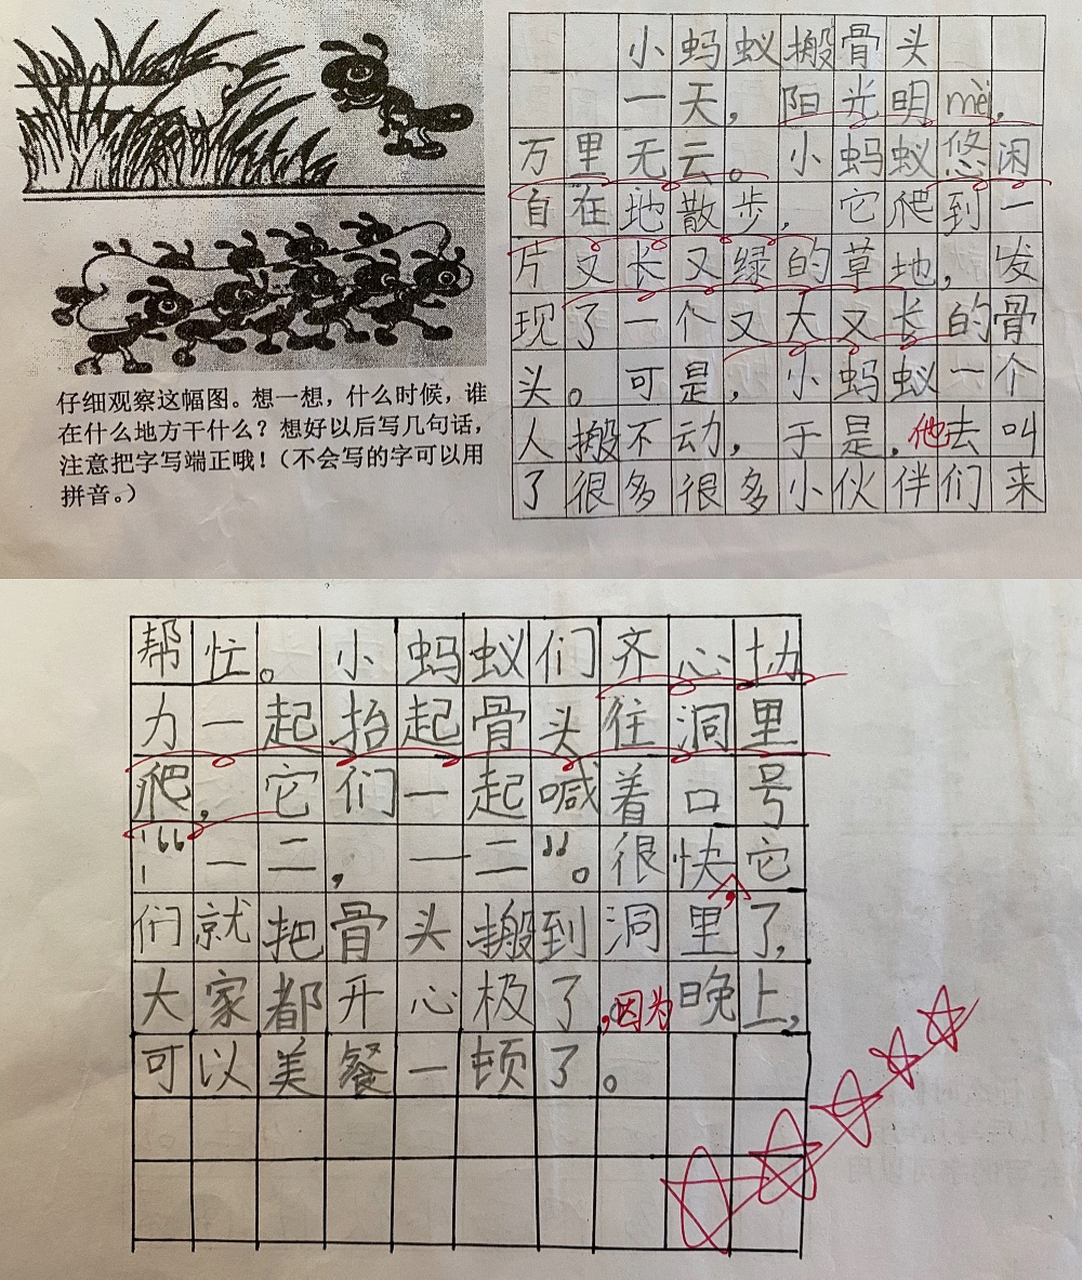 仔细观察这幅图。想一想，什么时候，谁
在什么地方干什么？想好以后写几句话，
注意把字写端正哦！（不会写的字可以用
拼音。）
小蚂蚁搬骨头
一天，阳光明mèi，
万里无云。小蚂蚁悠闲
自在地散步，它爬到一
片又长又绿的草地，发
现了一个又大又长的骨
头。可是，小蚂蚁一个
人搬不动，于是，他去叫
了很多很多小伙伴们来
帮忙。小蚂蚁们齐心协
力一起抬起骨头往洞里
爬，它们一起喊着口号
：“一二，一二”。很快，它
们就把骨头搬到洞里了，
大家都开心极了，因为晚上，
可以美餐一顿了。